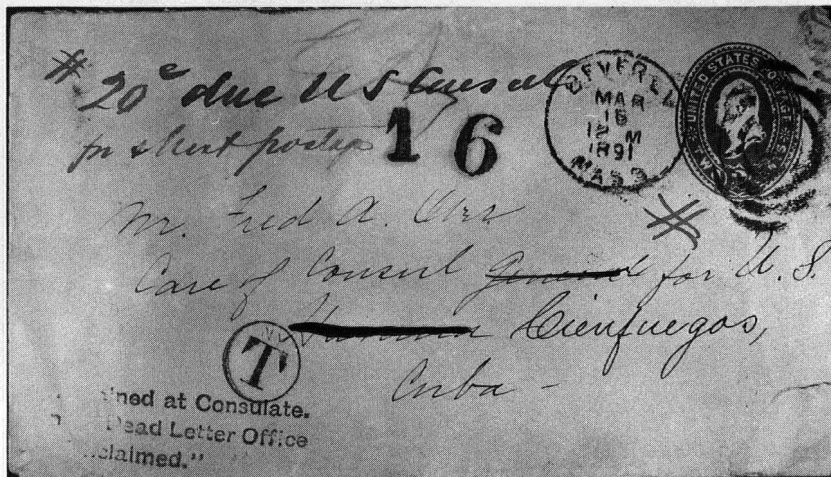 # 20c due U S Consul
for short postage
16
BEVERLY
MAR
16
12 M
1891
MASS
UNITED STATES POSTAGE
Mr. Fred A.
Care of Consul General for U. S.
Havana Cienfuegos,
Cuba -
T
ined at Consulate.
Dead Letter Office
claimed."